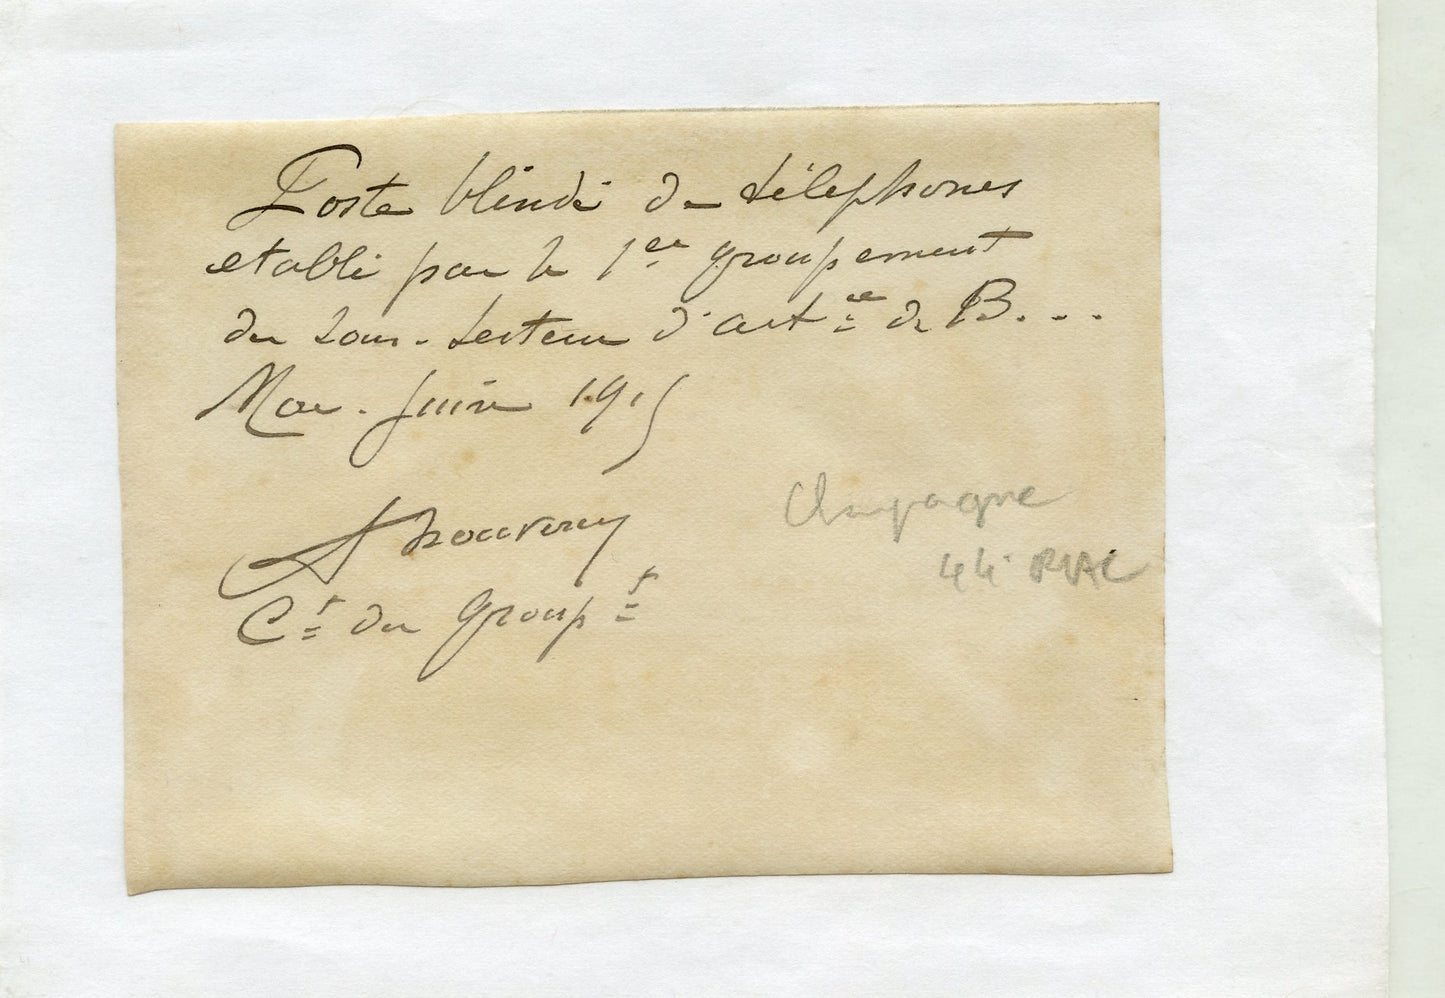 Poste blindé de téléphones
etabli par le 1er groupement
du sous-secteur d'artie de B...
Mai-Juin 1915
Ct du Groupt
Champagne
44e RAC